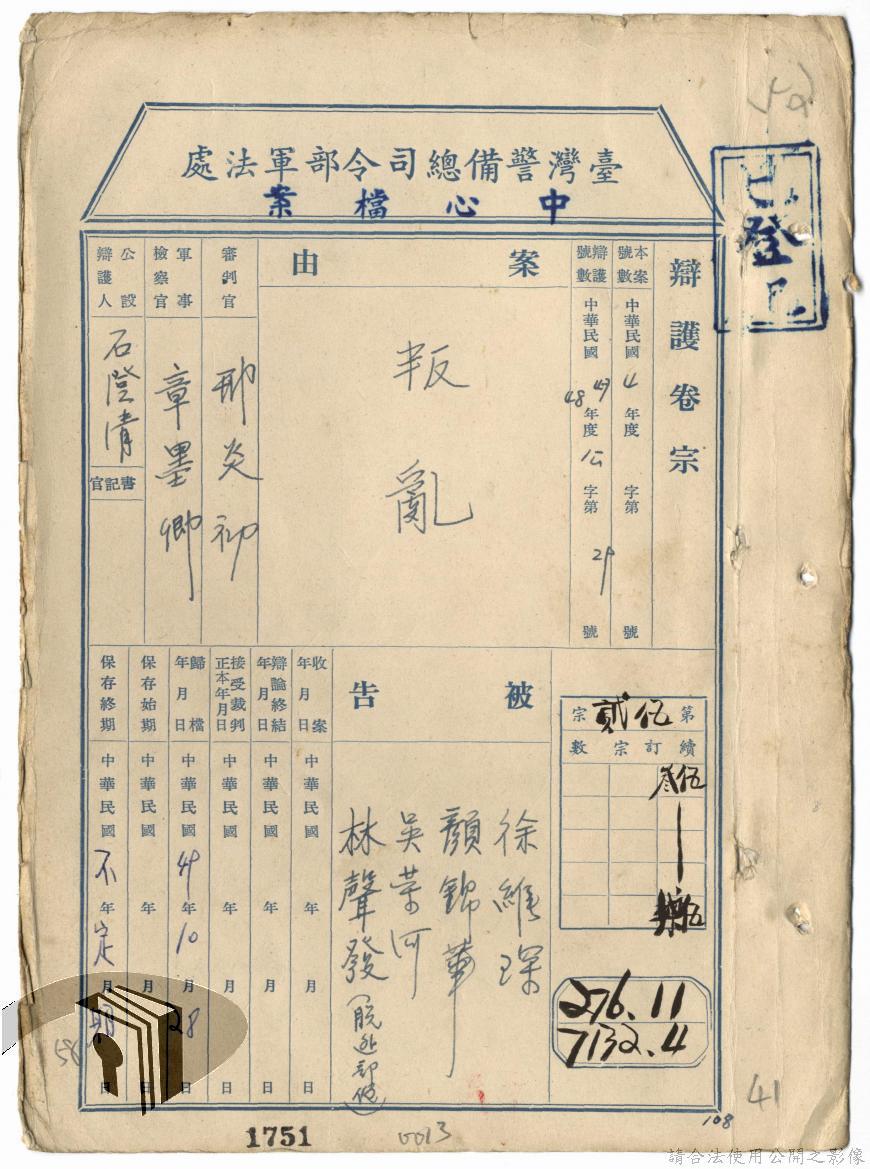 臺灣警備總司令部軍法處
中心檔案
已登記
辯護卷宗
本案號數 中華民國 年度 字第 號
辯護號數 中華民國 48 年度 公 字第 29 號
案由
叛亂
審判官 邢炎初
軍事檢察官 章墨卿
公設辯護人 石澄清
書記官
第伍貳宗
續訂宗數
伍叁
276.11
7132.4
被告
徐維琛
顏錦華
吳榮河
林聲發(脫逃部份)
收案年月日 中華民國 年 月 日
辯論終結年月日 中華民國 年 月 日
接受裁判正本年月日 中華民國 年 月 日
歸檔年月日 中華民國 49 年 10 月 28 日
保存始期 中華民國 年 月 日
保存終期 中華民國 不 年 定 月 期 日
58
1751
0013
108
41
請合法使用公開之影像